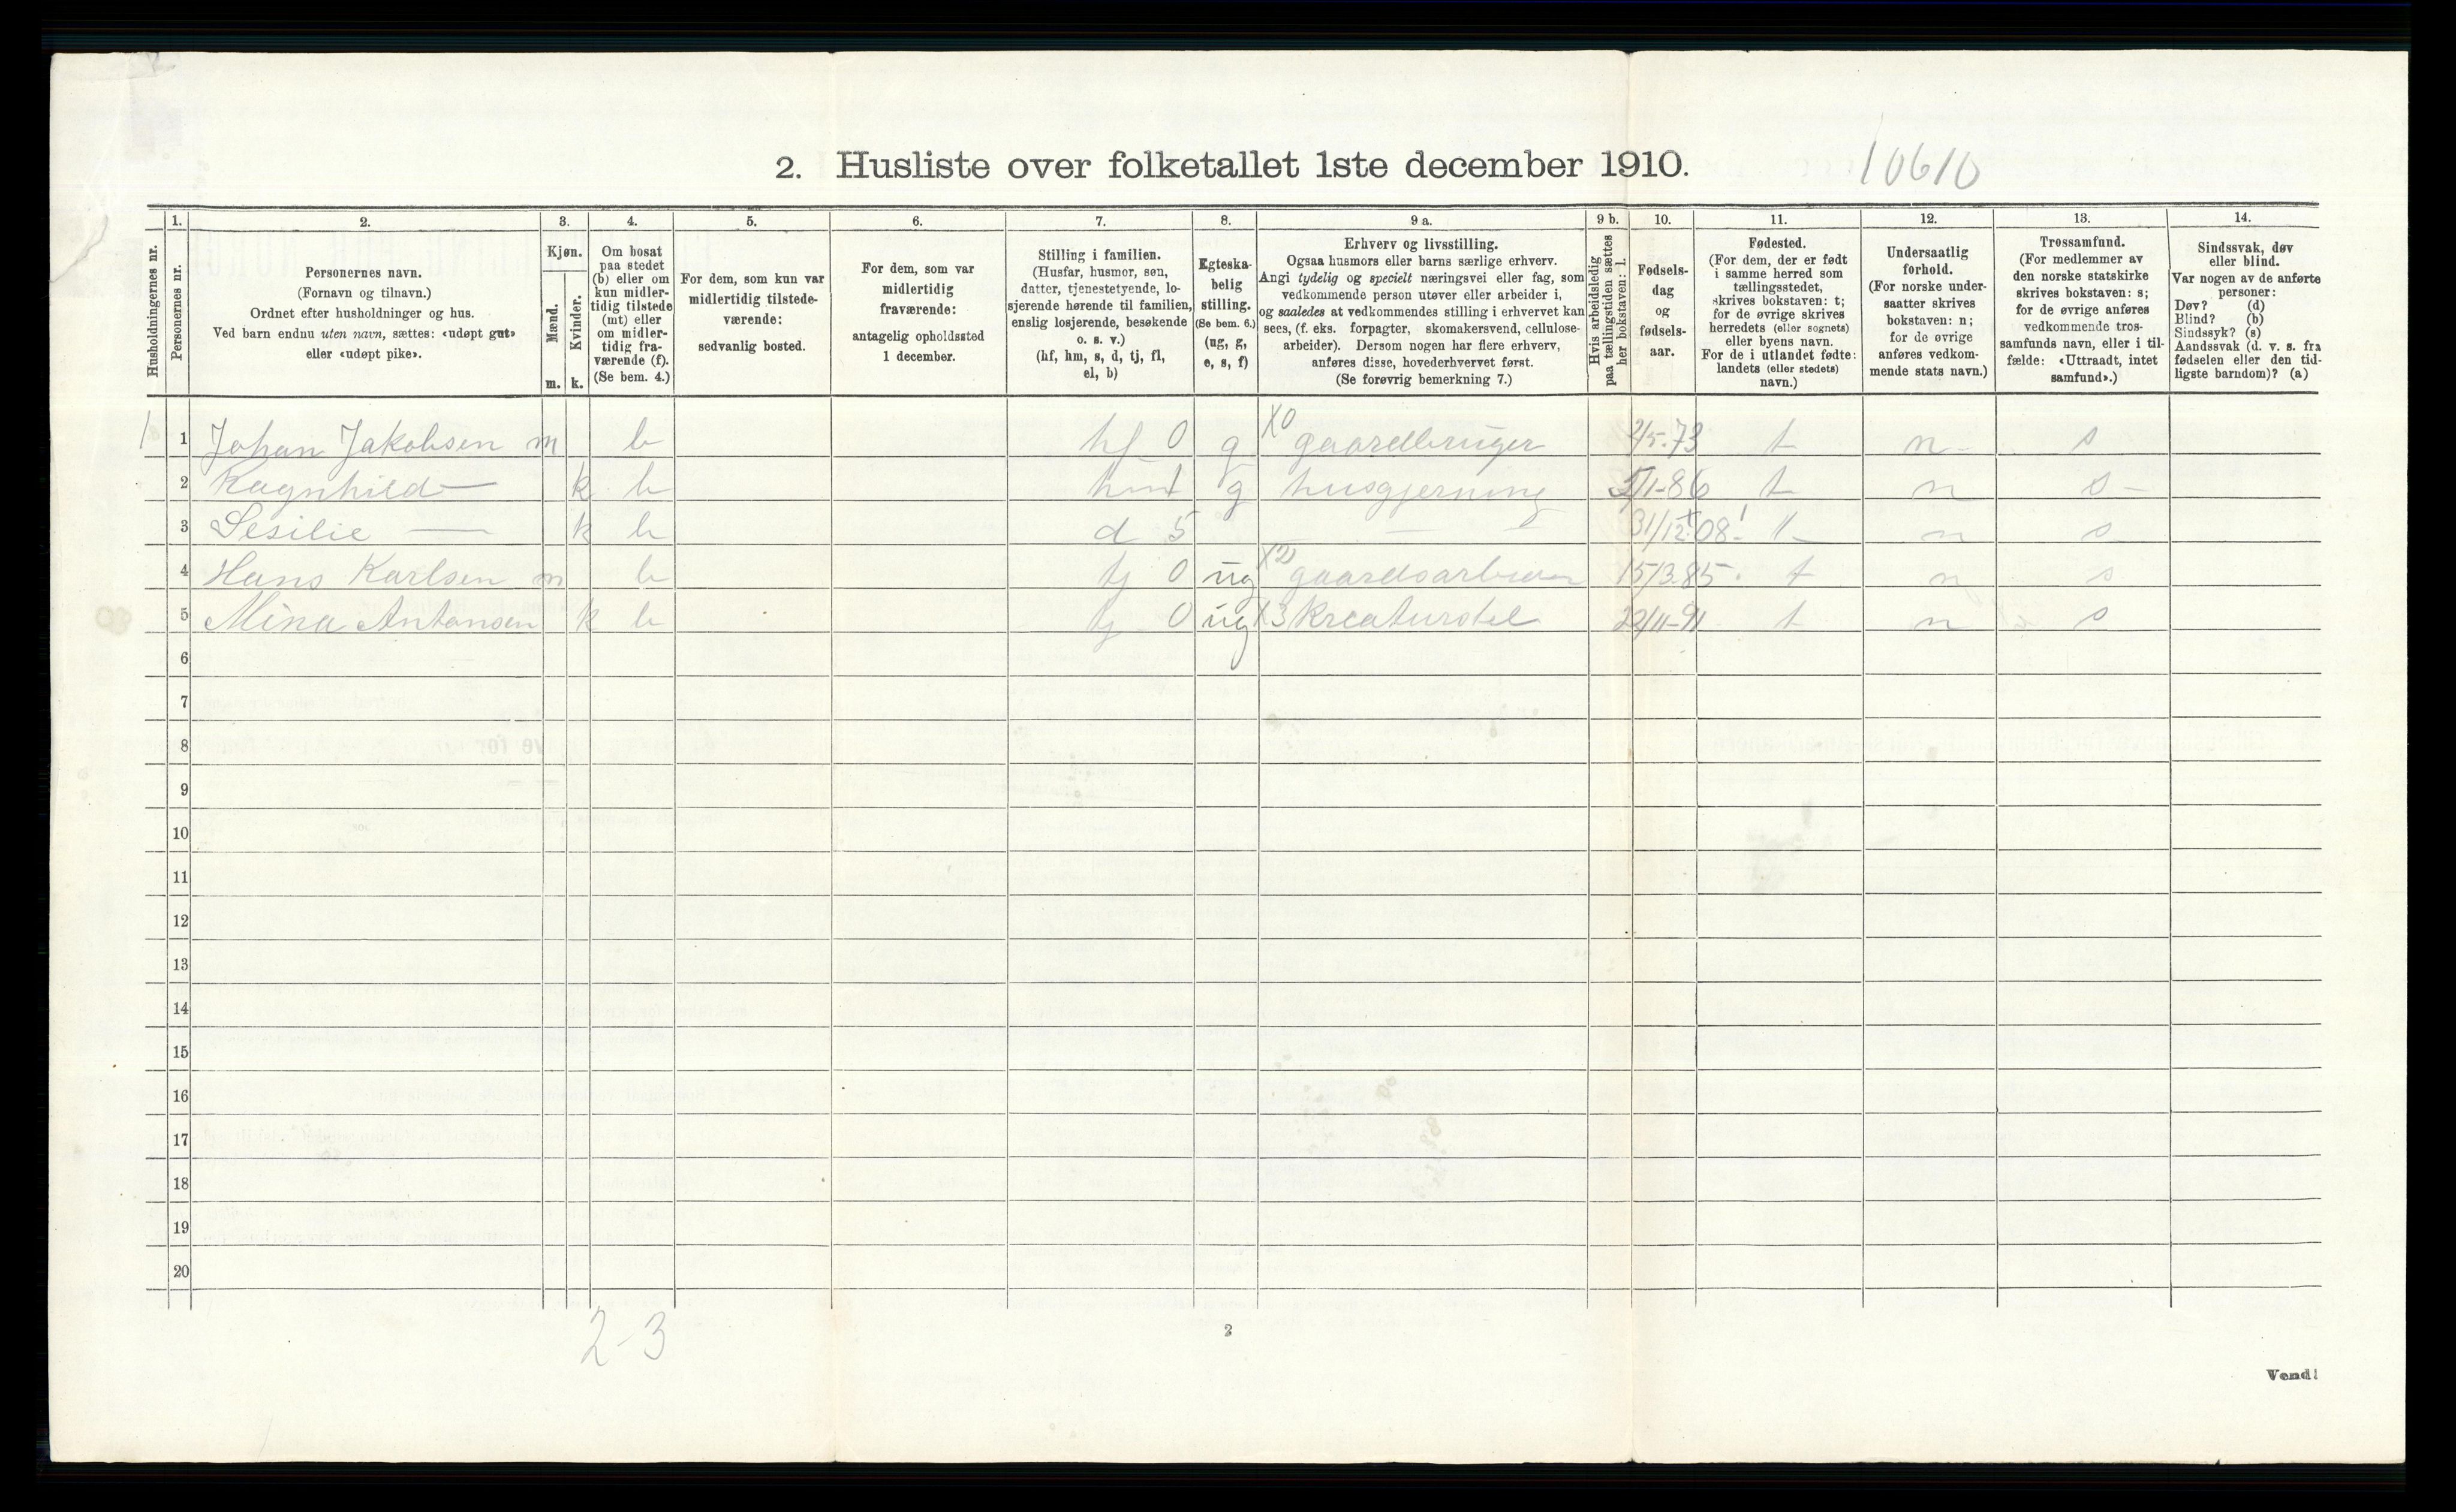 2. Husliste over folketallet 1ste december 1910.
10610
Husholdningernes nr.
1.
Personernes nr.
2.
Personernes navn.
(Fornavn og tilnavn.)
Ordnet efter husholdninger og hus.
Ved barn endnu uten navn, sættes: «udøpt gut»
eller «udøpt pike».
3.
Kjøn.
Mænd.
m.
Kvinder.
k.
4.
Om bosat
paa stedet
(b) eller om
kun midler-
tidig tilstede
(mt) eller
om midler-
tidig fra-
værende (f).
(Se bem. 4.)
5.
For dem, som kun var
midlertidig tilstede-
værende:
sedvanlig bosted.
6.
For dem, som var
midlertidig
fraværende:
antagelig opholdssted
1 december.
7.
Stilling i familien.
(Husfar, husmor, søn,
datter, tjenestetyende, lo-
sjerende hørende til familien,
enslig losjerende, besøkende
o. s. v.)
(hf, hm, s, d, tj, fl,
el, b)
8.
Egteska-
belig
stilling.
(Se bem. 6.)
(ug, g,
e, s, f)
9 a.
Erhverv og livsstilling.
Ogsaa husmors eller barns særlige erhverv.
Angi tydelig og specielt næringsvei eller fag, som
vedkommende person utøver eller arbeider i,
og saaledes at vedkommendes stilling i erhvervet kan
sees, (f. eks. forpagter, skomakersvend, cellulose-
arbeider). Dersom nogen har flere erhverv,
anføres disse, hovederhvervet først.
(Se forøvrig bemerkning 7.)
9 b.
Hvis arbeidsledig
paa tællingstiden sættes
her bokstaven: l.
10.
Fødsels-
dag
og
fødsels-
aar.
11.
Fødested.
(For dem, der er født
i samme herred som
tællingsstedet,
skrives bokstaven: t;
for de øvrige skrives
herredets (eller sognets)
eller byens navn.
For de i utlandet fødte:
landets (eller stedets)
navn.)
12.
Undersaatlig
forhold.
(For norske under-
saatter skrives
bokstaven: n;
for de øvrige
anføres vedkom-
mende stats navn.)
13.
Trossamfund.
(For medlemmer av
den norske statskirke
skrives bokstaven: s;
for de øvrige anføres
vedkommende tros-
samfunds navn, eller i til-
fælde: «Uttraadt, intet
samfund».)
14.
Sindssvak, døv
eller blind.
Var nogen av de anførte
personer:
Døv? (d)
Blind? (b)
Sindssyk? (s)
Aandssvak (d. v. s. fra
fødselen eller den tid-
ligste barndom)? (a)
1 1 Johan Jakobsen m b hf 0 g X0 gaardbruger 2/5.73 t n s
2 Ragnhild — k b hm 1 g husgjerning 5/1-86 t n s
3 Sesilie — k b d 5 — 31/12.08 t n s
4 Hans Karlsen m b tj 0 ug X2 gaardsarbeider 15/3.85 t n s
5 Mina Antonsen k b tj 0 ug X3 kreaturstel 22/11-91 t n s
6
7
8
9
10
11
12
13
14
15
16
17
18
19
20
2-3
2
Vend!